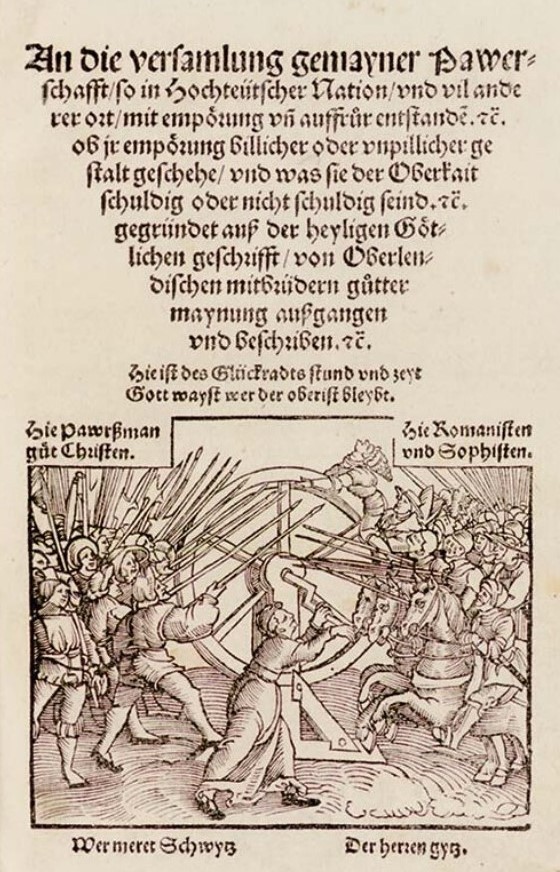 An die versamlung gemayner Pawer-
schafft/so in Hochteütscher Nation/vnd vil ande
rer ort/mit empörung vñ auffrůr entstandẽ.ꝛc̃.
ob jr empörung billicher oder vnpillicher ge
stalt geschehe/ vnd was sie der Oberkait
schuldig oder nicht schuldig seind.ꝛc̃.
gegründet auß der heyligen Göt-
lichen geschrifft/ von Oberlen-
dischen mitbrüdern gůtter
maynung außgangen
vnd beschriben.ꝛc̃.
Hie ist des Glückradts stund vnd zeyt
Gott wayst wer der oberist bleybt.
Hie Pawrßman
gůt Christen.
Hie Romanisten
vnd Sophisten.
Wer meret Schwytz
Der herren gytz.